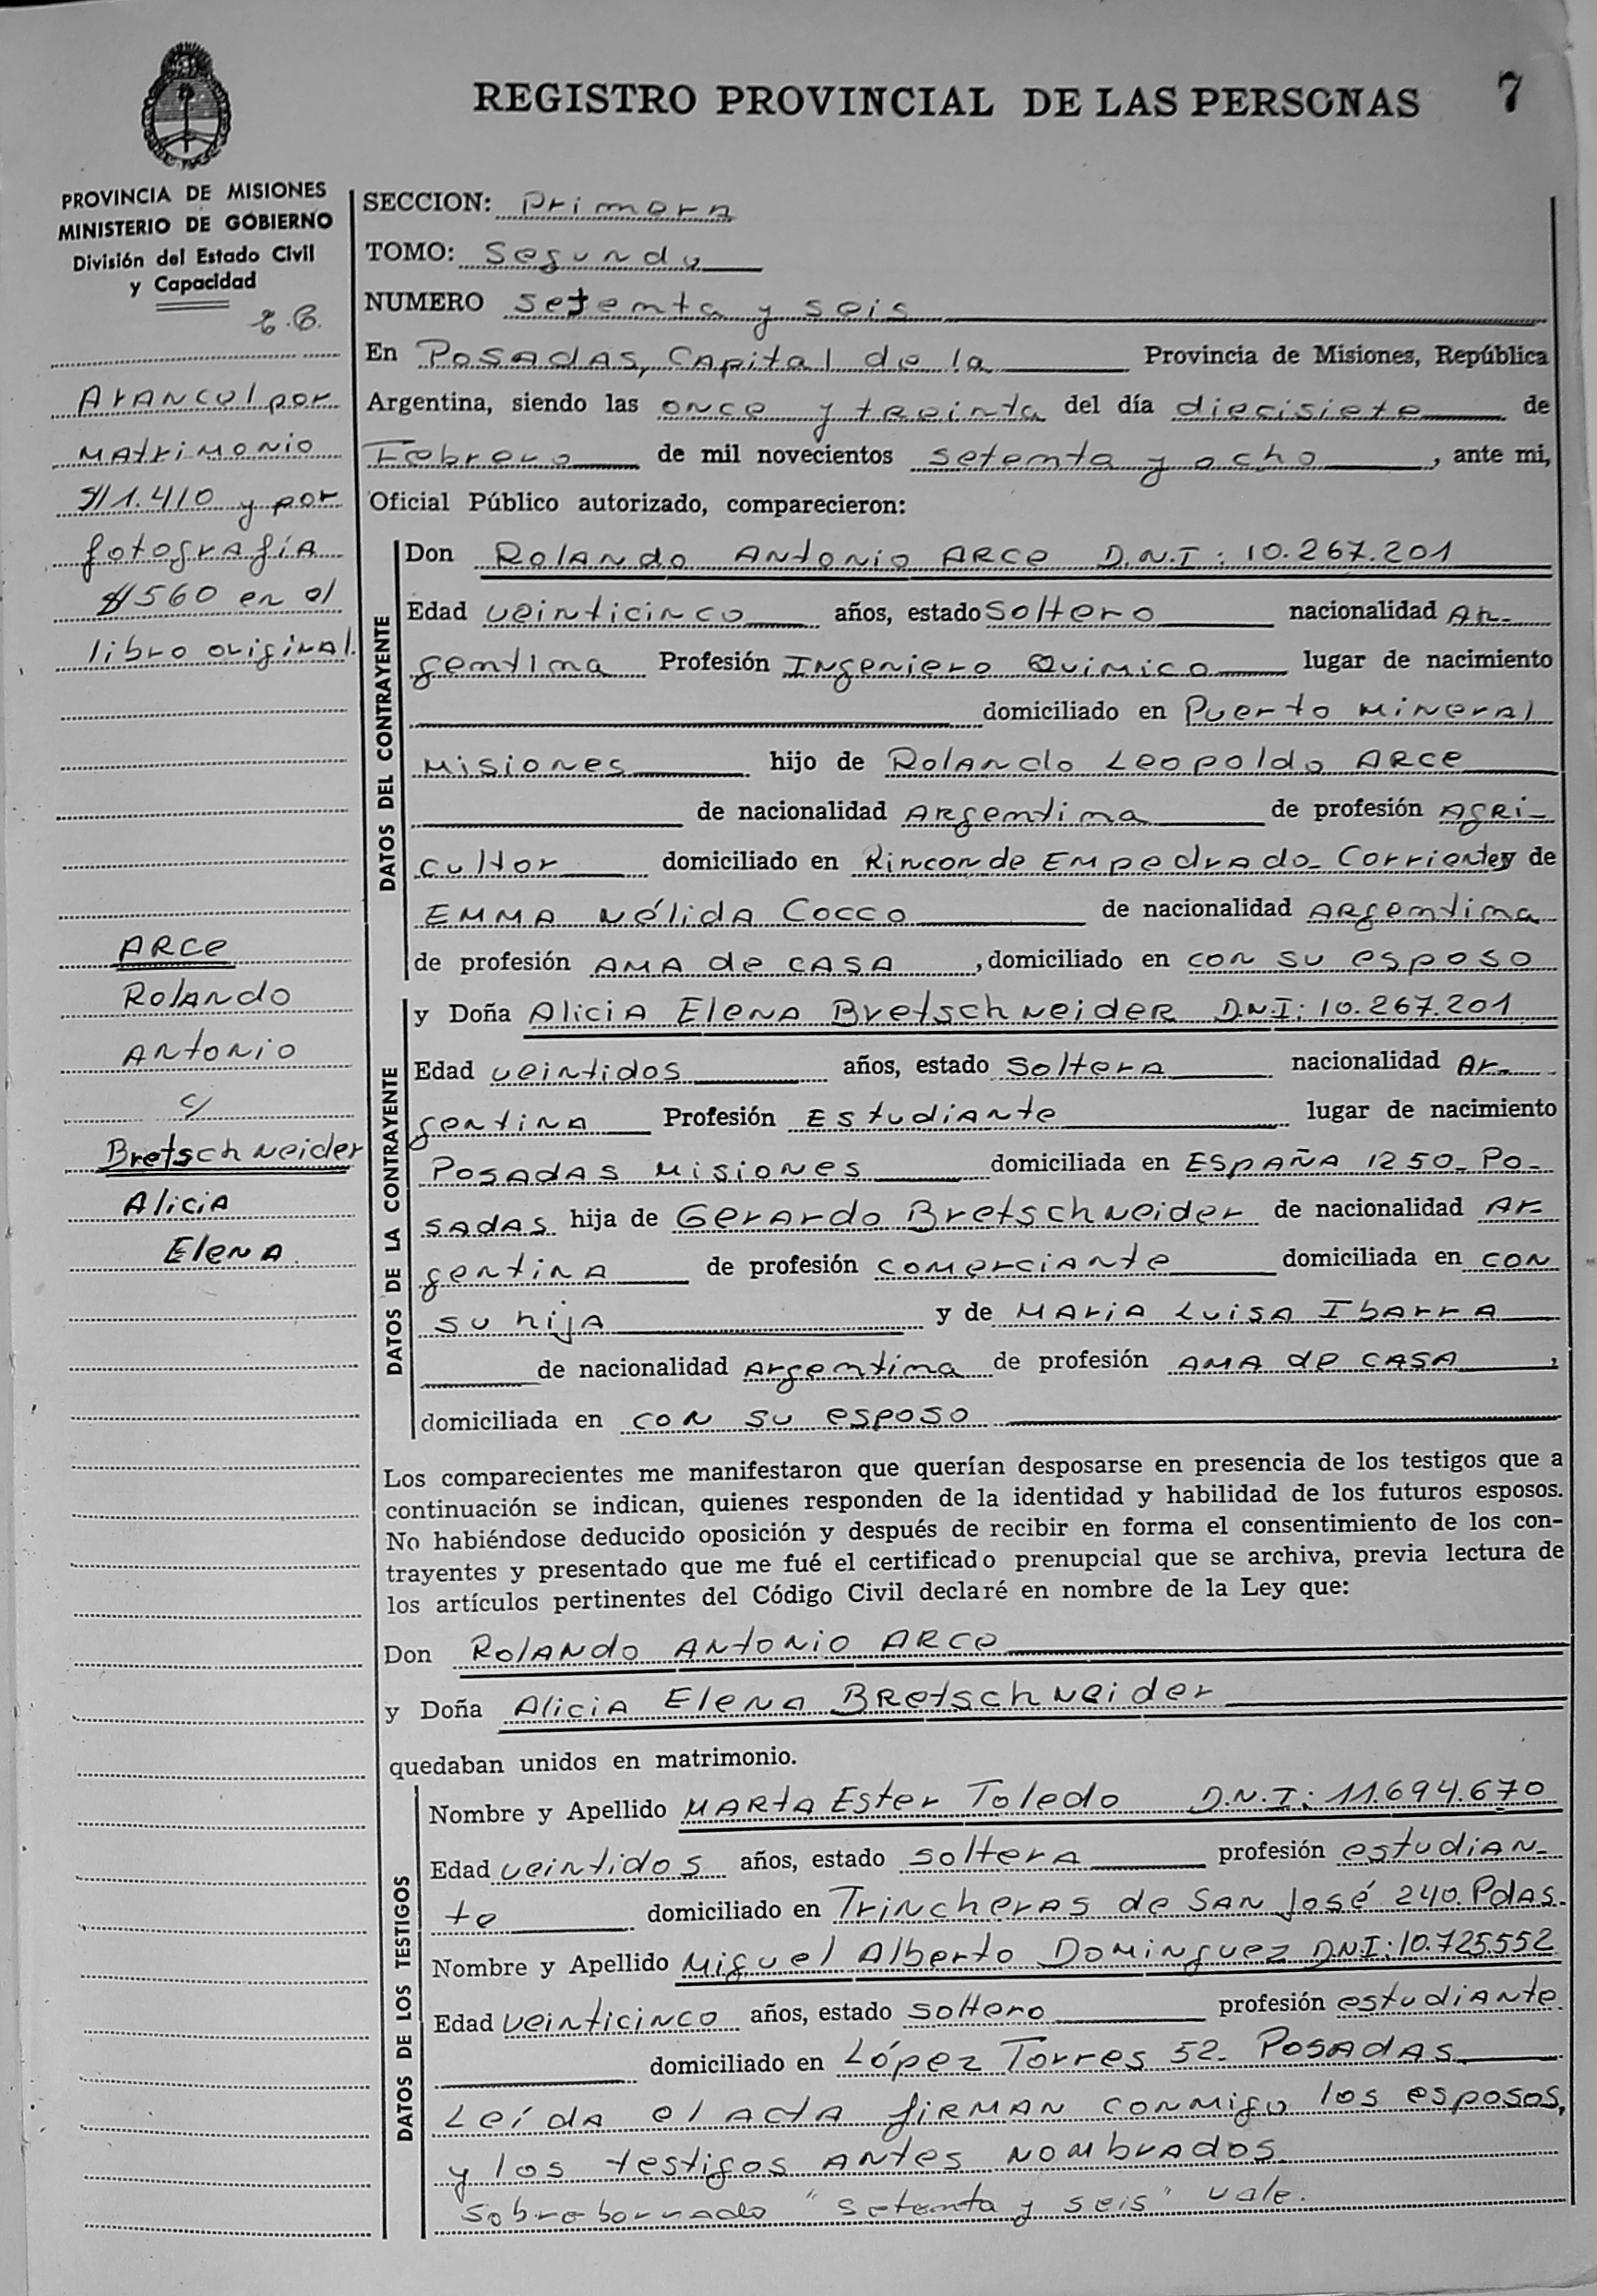 REGISTRO PROVINCIAL DE LAS PERSONAS 7
PROVINCIA DE MISIONES
MINISTERIO DE GOBIERNO
División del Estado Civil
y Capacidad
Arancel por
Matrimonio
$ 1.410 y por
fotografía
$ 560 en el
libro original.
ARCE
Rolando
Antonio
c/
Bretschneider
Alicia
Elena.
SECCION: Primera
TOMO: Segundo
NUMERO setenta y seis
En Posadas, Capital de la Provincia de Misiones, República
Argentina, siendo las once y treinta del día diecisiete de
Febrero de mil novecientos setenta y ocho, ante mi,
Oficial Público autorizado, comparecieron:
DATOS DEL CONTRAYENTE
Don Rolando Antonio Arce D.N.I: 10.267.201
Edad veinticinco años, estado Soltero nacionalidad Ar-
gentina Profesión Ingeniero Químico lugar de nacimiento
domiciliado en Puerto Mineral
Misiones hijo de Rolando Leopoldo Arce
de nacionalidad Argentina de profesión Agri-
cultor domiciliado en Rincon de Empedrado_ Corrientes y de
Emma Nélida Cocco de nacionalidad Argentina
de profesión Ama de casa, domiciliado en con su esposo
DATOS DE LA CONTRAYENTE
y Doña Alicia Elena Bretschneider D.N.I: 10.267.201
Edad veintidos años, estado Soltera nacionalidad Ar-
gentina Profesión Estudiante lugar de nacimiento
Posadas Misiones domiciliada en España 1250_ Po-
sadas hija de Gerardo Bretschneider de nacionalidad Ar-
gentina de profesión comerciante domiciliada en con
su hija y de Maria Luisa Ibarra
de nacionalidad Argentina de profesión Ama de casa,
domiciliada en con su esposo
Los comparecientes me manifestaron que querían desposarse en presencia de los testigos que a
continuación se indican, quienes responden de la identidad y habilidad de los futuros esposos.
No habiéndose deducido oposición y después de recibir en forma el consentimiento de los con-
trayentes y presentado que me fué el certificado prenupcial que se archiva, previa lectura de
los artículos pertinentes del Código Civil declaré en nombre de la Ley que:
Don Rolando Antonio Arce
y Doña Alicia Elena Bretschneider
quedaban unidos en matrimonio.
DATOS DE LOS TESTIGOS
Nombre y Apellido Marta Ester Toledo D.N.I: 11.694.670
Edad veintidos años, estado soltera profesión estudian-
te domiciliado en Trincheras de San José 240. Pdas.
Nombre y Apellido Miguel Alberto Dominguez D.N.I: 10.725.552
Edad veinticinco años, estado soltero profesión estudiante
domiciliado en López Torres 52_ Posadas
Leída el acta firman conmigo los esposos,
y los testigos antes nombrados.
Sobreborrado "setenta y seis" vale.